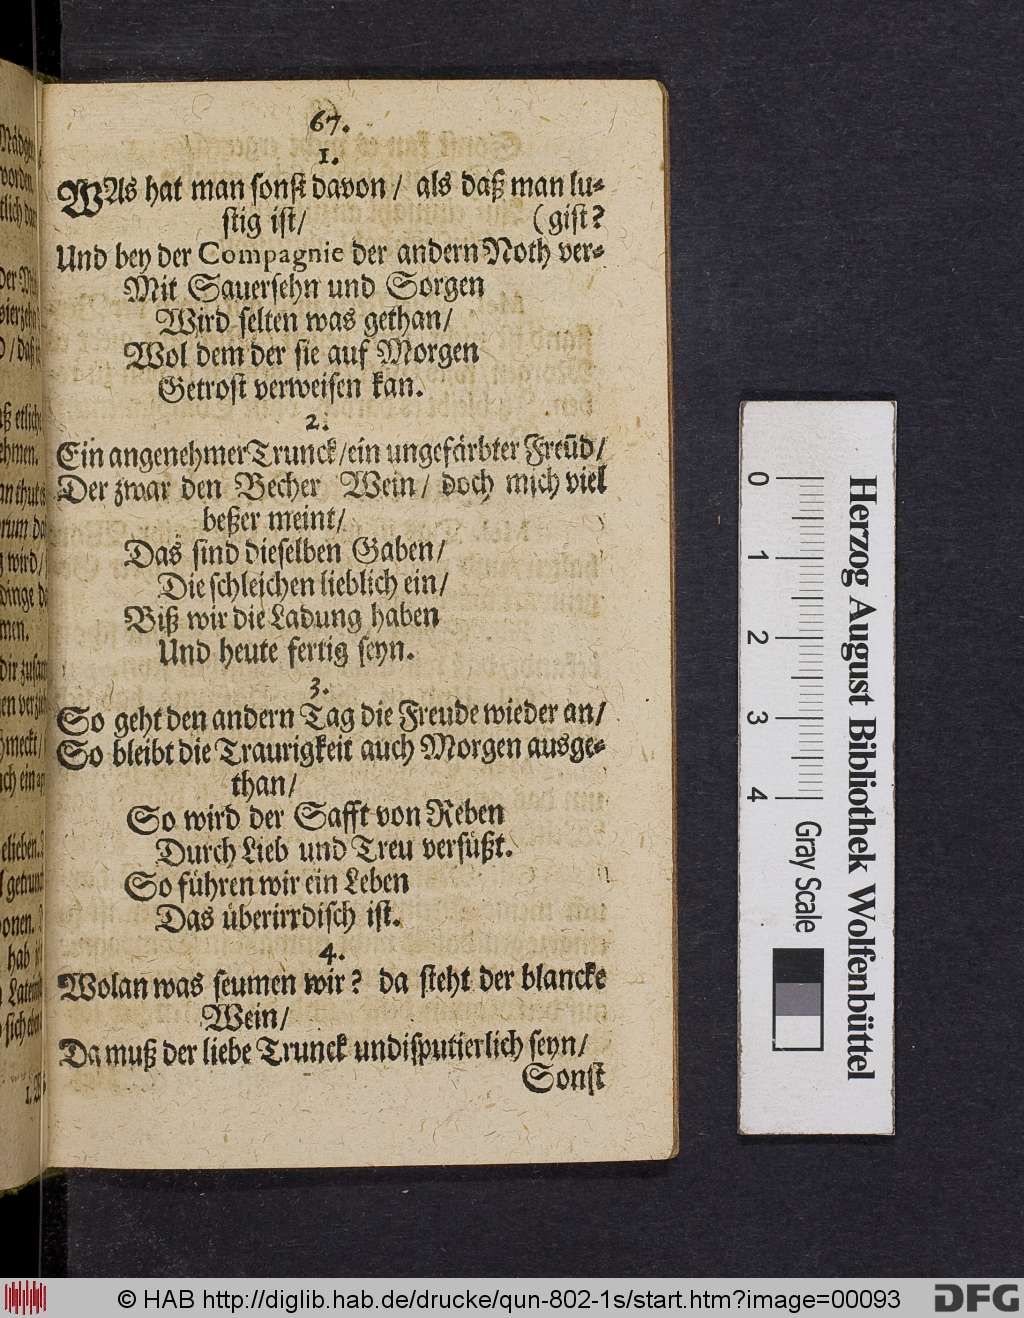 67.
1.
WAs hat man sonst davon / als daß man lu-
stig ist/ (gist?
Und bey der Compagnie der andern Noth ver-
Mit Sauersehn und Sorgen
Wird selten was gethan/
Wol dem der sie auf Morgen
Getrost verweisen kan.
2.
Ein angenehmer Trunck/ein ungefärbter Freūd/
Der zwar den Becher Wein/ doch mich viel
beßer meint/
Das sind dieselben Gaben/
Die schleichen lieblich ein/
Biß wir die Ladung haben
Und heute fertig seyn.
3.
So geht den andern Tag die Freude wieder an/
So bleibt die Traurigkeit auch Morgen ausge-
than/
So wird der Safft von Reben
Durch Lieb und Treu versüßt.
So führen wir ein Leben
Das überirrdisch ist.
4.
Wolan was seumen wir? da steht der blancke
Wein/
Da muß der liebe Trunck undisputierlich seyn/
Sonst
0 1 2 3 4
Gray Scale
Herzog August Bibliothek Wolfenbüttel
© HAB http://diglib.hab.de/drucke/qun-802-1s/start.htm?image=00093
DFG